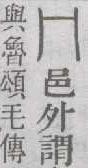 冂邑外謂
與魯頌毛傳